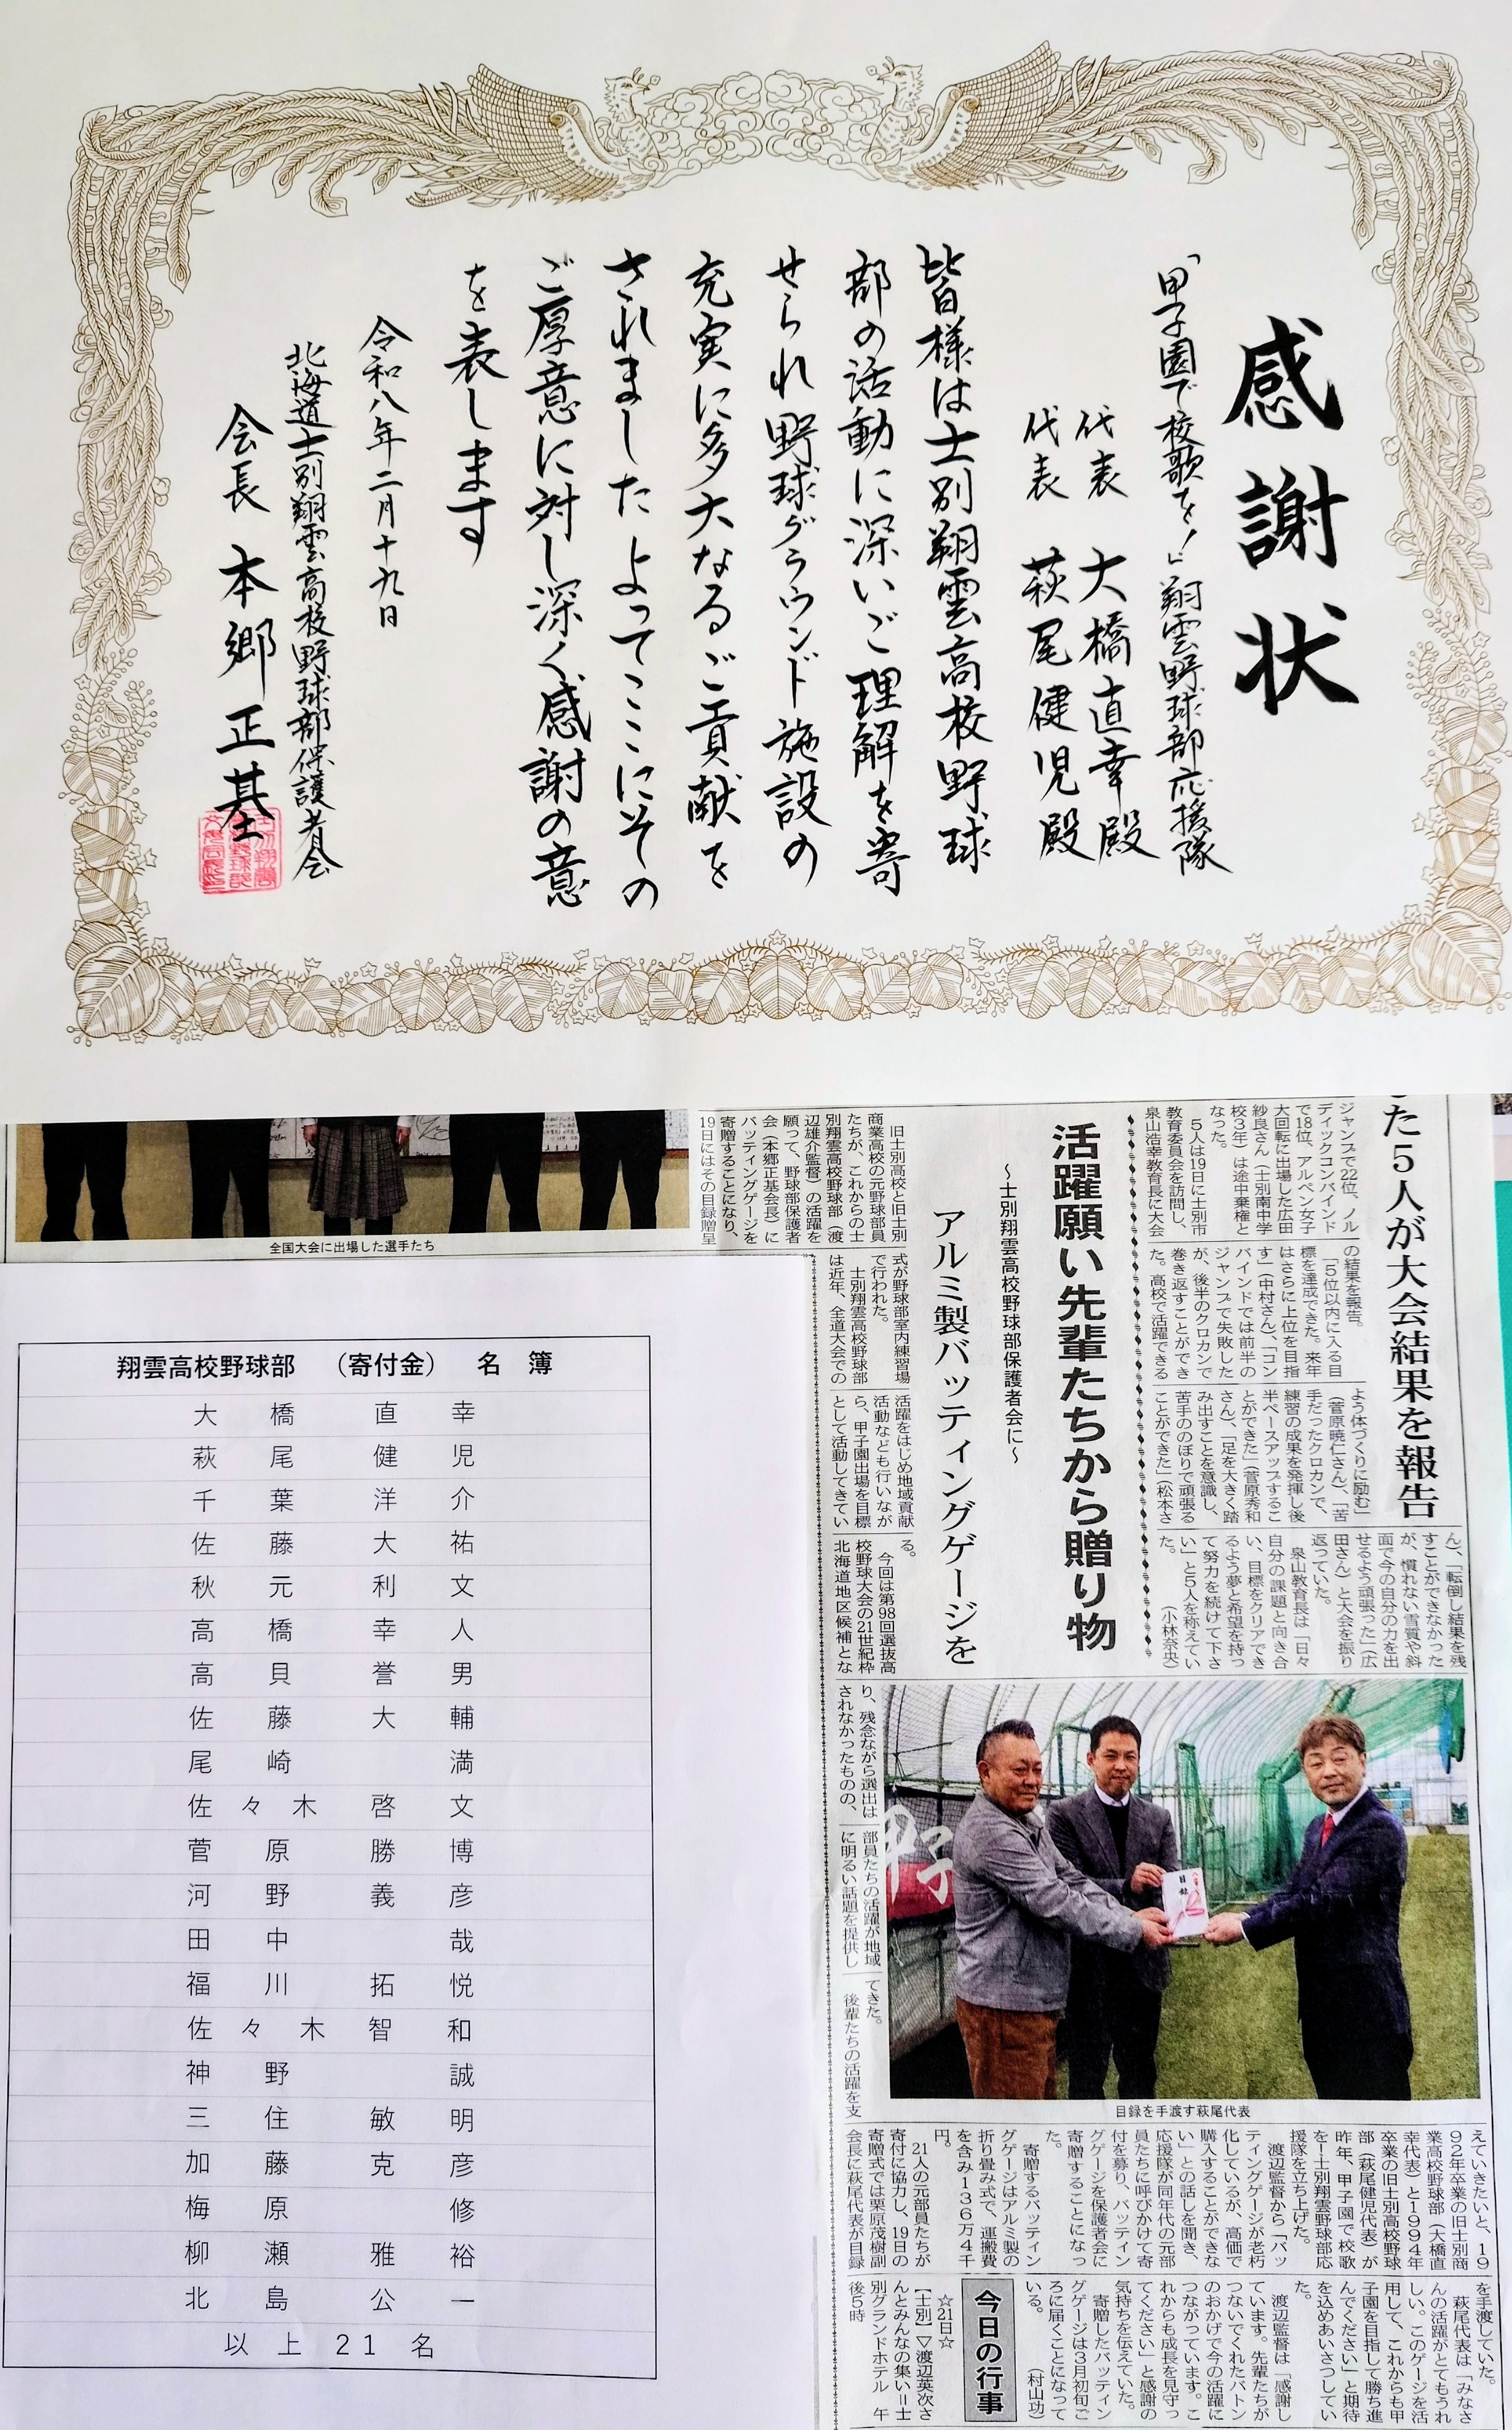 感謝状
「甲子園で校歌を!」翔雲野球部応援隊
代表 大橋直幸殿
代表 萩尾健児殿
皆様は士別翔雲高校野球
部の活動に深いご理解を寄
せられ野球グラウンド施設の
充実に多大なるご貢献を
されましたよってここにその
ご厚意に対し深く感謝の意
を表します
令和八年二月十九日
北海道士別翔雲高校野球部保護者会
会長 本郷正基
た5人が大会結果を報告
ジャンプで22位、ノル
ディックコンバインド
で18位、アルペン女子
大回転に出場した広田
紗良さん（士別南中学
校3年）は途中棄権と
なった。
5人は19日に士別市
教育委員会を訪問し、
泉山浩幸教育長に大会
の結果を報告。
「5位以内に入る目
標を達成できた。来年
はさらに上位を目指
す」（中村さん）、「コン
バインドでは前半の
ジャンプで失敗した
が、後半のクロカンで
巻き返すことができ
た。高校で活躍できる
よう体づくりに励む」
（菅原暁仁さん）、「苦
手だったクロカンで、
練習の成果を発揮し後
半ペースアップするこ
とができた」（菅原秀和
さん）、「足を大きく踏
み出すことを意識し、
苦手ののぼりで頑張る
ことができた」（松本さ
ん）、「転倒し結果を残
すことができなかった
が、慣れない雪質や斜
面で今の自分の力を出
せるよう頑張った」（広
田さん）と大会を振り
返っていた。
泉山教育長は「日々
自分の課題と向き合
い、目標をクリアでき
るよう夢と希望を持っ
て努力を続けて下さ
い」と5人を称えてい
た。
（小林奈央）
全国大会に出場した選手たち
活躍願い先輩たちから贈り物
～士別翔雲高校野球部保護者会に～
アルミ製バッティングゲージを
旧士別高校と旧士別
商業高校の元野球部員
たちが、これからの士
別翔雲高校野球部（渡
辺雄介監督）の活躍を
願って、野球部保護者
会（本郷正基会長）に
バッティングゲージを
寄贈することになり、
19日にはその目録贈呈
式が野球部室内練習場
で行われた。
士別翔雲高校野球部
は近年、全道大会での
活躍をはじめ地域貢献
活動なども行いなが
ら、甲子園出場を目標
として活動してきてい
る。
今回は第98回選抜高
校野球大会の21世紀枠
北海道地区候補とな
り、残念ながら選出は
されなかったものの、
部員たちの活躍が地域
に明るい話題を提供し
てきた。
後輩たちの活躍を支
えていきたいと、19
92年卒業の旧士別商
業高校野球部（大橋直
幸代表）と1994年
卒業の旧士別高校野球
部（萩尾健児代表）が
昨年、甲子園で校歌
を！士別翔雲野球部応
援隊を立ち上げた。
渡辺監督から「バッ
ティングゲージが老朽
化しているが、高価で
購入することができな
い」との話しを聞き、
応援隊が同年代の元部
員たちに呼びかけて寄
付を募り、バッティン
グゲージを保護者会に
寄贈することになっ
た。
寄贈するバッティン
グゲージはアルミ製の
折り畳み式で、運搬費
を含み136万4千
円。
21人の元部員たちが
寄付に協力し、19日の
寄贈式では栗原茂樹副
会長に萩尾代表が目録
を手渡していた。
萩尾代表は「みなさ
んの活躍がとてもうれ
しい。このゲージを活
用して、これからも甲
子園を目指して勝ち進
んでください」と期待
を込めあいさつしてい
た。
渡辺監督は「感謝し
ています。先輩たちが
つないでくれたバトン
のおかげで今の活躍に
つながっています。こ
れからも成長を見守っ
てください」と感謝の
気持ちを伝えていた。
寄贈したバッティン
グゲージは3月初旬ご
ろに届くことになって
いる。
（村山功）
目録
目録を手渡す萩尾代表
今日の行事
☆21日☆
【士別】▽渡辺英次さ
んとみんなの集い＝士
別グランドホテル 午
後5時
翔雲高校野球部 （寄付金） 名簿
大橋直幸
萩尾健児
千葉洋介
佐藤大祐
秋元利文
高橋幸人
高貝誉男
佐藤大輔
尾崎満
佐々木啓文
菅原勝博
河野義彦
田中哉
福川拓悦
佐々木智和
神野誠
三住敏明
加藤克彦
梅原修
柳瀬雅裕
北島公一
以上21名